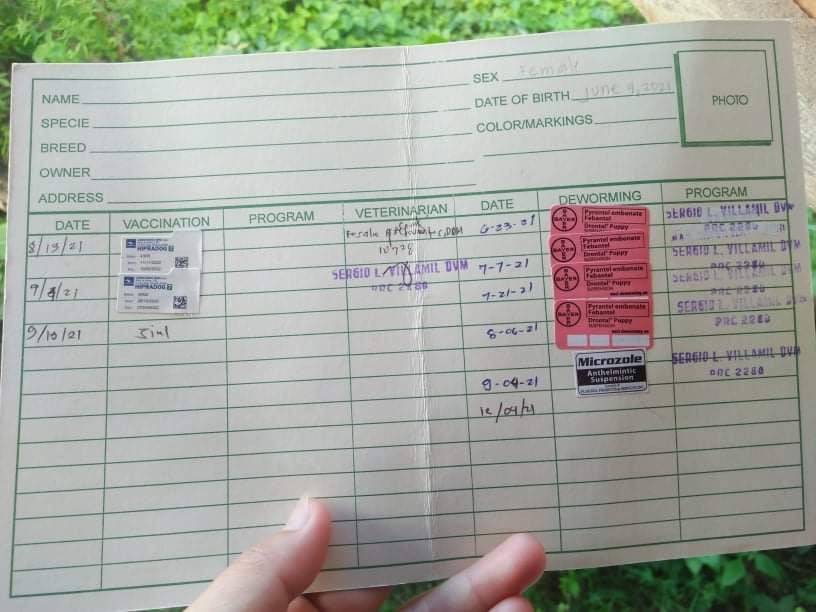 NAME
SPECIE
BREED
OWNER
ADDRESS
SEX Female
DATE OF BIRTH June 9, 2021
COLOR/MARKINGS
PHOTO
DATE VACCINATION PROGRAM VETERINARIAN DATE DEWORMING PROGRAM
8/13/21 HIPRADOG 7
SERGIO L. VILLAMIL DVM
PRC 2280
6-23-21 Pyrantel embonate
Febantel
Drontal® Puppy
SUSPENSION
BAYER
SERGIO L. VILLAMIL DVM
PRC 2280
9/4/21 HIPRADOG 7
7-7-21 Pyrantel embonate
Febantel
Drontal® Puppy
BAYER
SERGIO L. VILLAMIL DVM
PRC 2280
7-21-21 Pyrantel embonate
Febantel
Drontal® Puppy
SUSPENSION
BAYER
SERGIO L. VILLAMIL DVM
PRC 2280
9/18/21 5in1
8-06-21 Pyrantel embonate
Febantel
Drontal® Puppy
SUSPENSION
BAYER
SERGIO L. VILLAMIL DVM
PRC 2280
9-04-21 Microzole
Anthelmintic
Suspension
SERGIO L. VILLAMIL DVM
PRC 2280
12/04/21